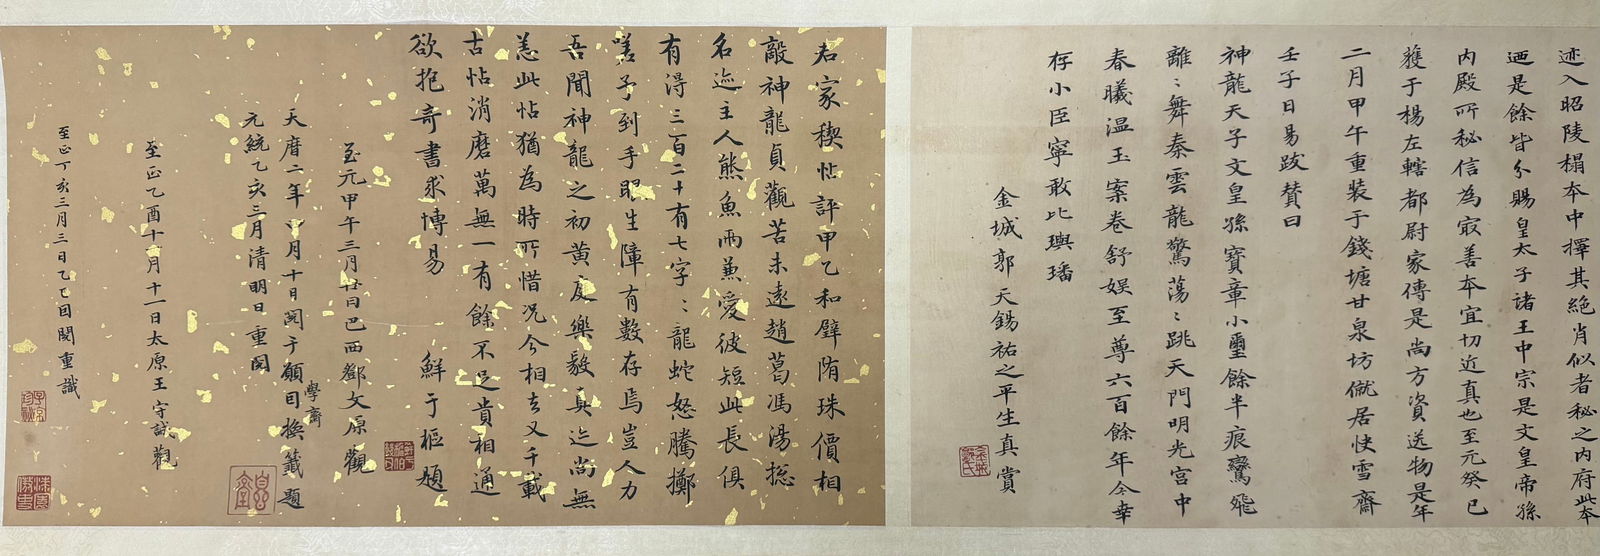 迹入昭陵搨本中擇其絶肖似者秘之内府此本
迺是餘皆分賜皇太子諸王中宗是文皇帝孫
内殿所秘信為㝡善本宜切近真也至元癸巳
獲于楊左轄都尉家傳是尚方資送物是年
二月甲午重裝于錢塘甘泉坊僦居快雪齋
壬子日易跋賛曰
神龍天子文皇孫寶章小璽餘半痕鸞飛
離〻舞秦雲龍驚蕩〻跳天門明光宮中
春曦温玉案卷舒娱至尊六百餘年今幸
存小臣寧敢比璵璠
金城郭天錫祐之平生真賞
君家稧帖評甲乙和璧隋珠價相
敵神龍貞觀苦未遠趙葛馮湯揔
名迹主人熊魚兩兼愛彼短此長俱
有得三百二十有七字〻龍蛇怒騰擲
嗟予到手眼生障有數存焉豈人力
吾聞神龍之初黄庭樂毅真迹尚無
恙此帖猶為時所惜况今相去又千載
古帖消磨萬無一有餘不足貴相通
欲抱奇書求愽易 鮮于樞題
至元甲午三月廿日巴西鄧文原觀
天曆二年 月十日閱于顧 撫籤題
學齋
元統乙亥三月清明日重閱
至正乙酉十一月十一日太原王守誠觀
至正丁亥三月三日乙乙目閱重識